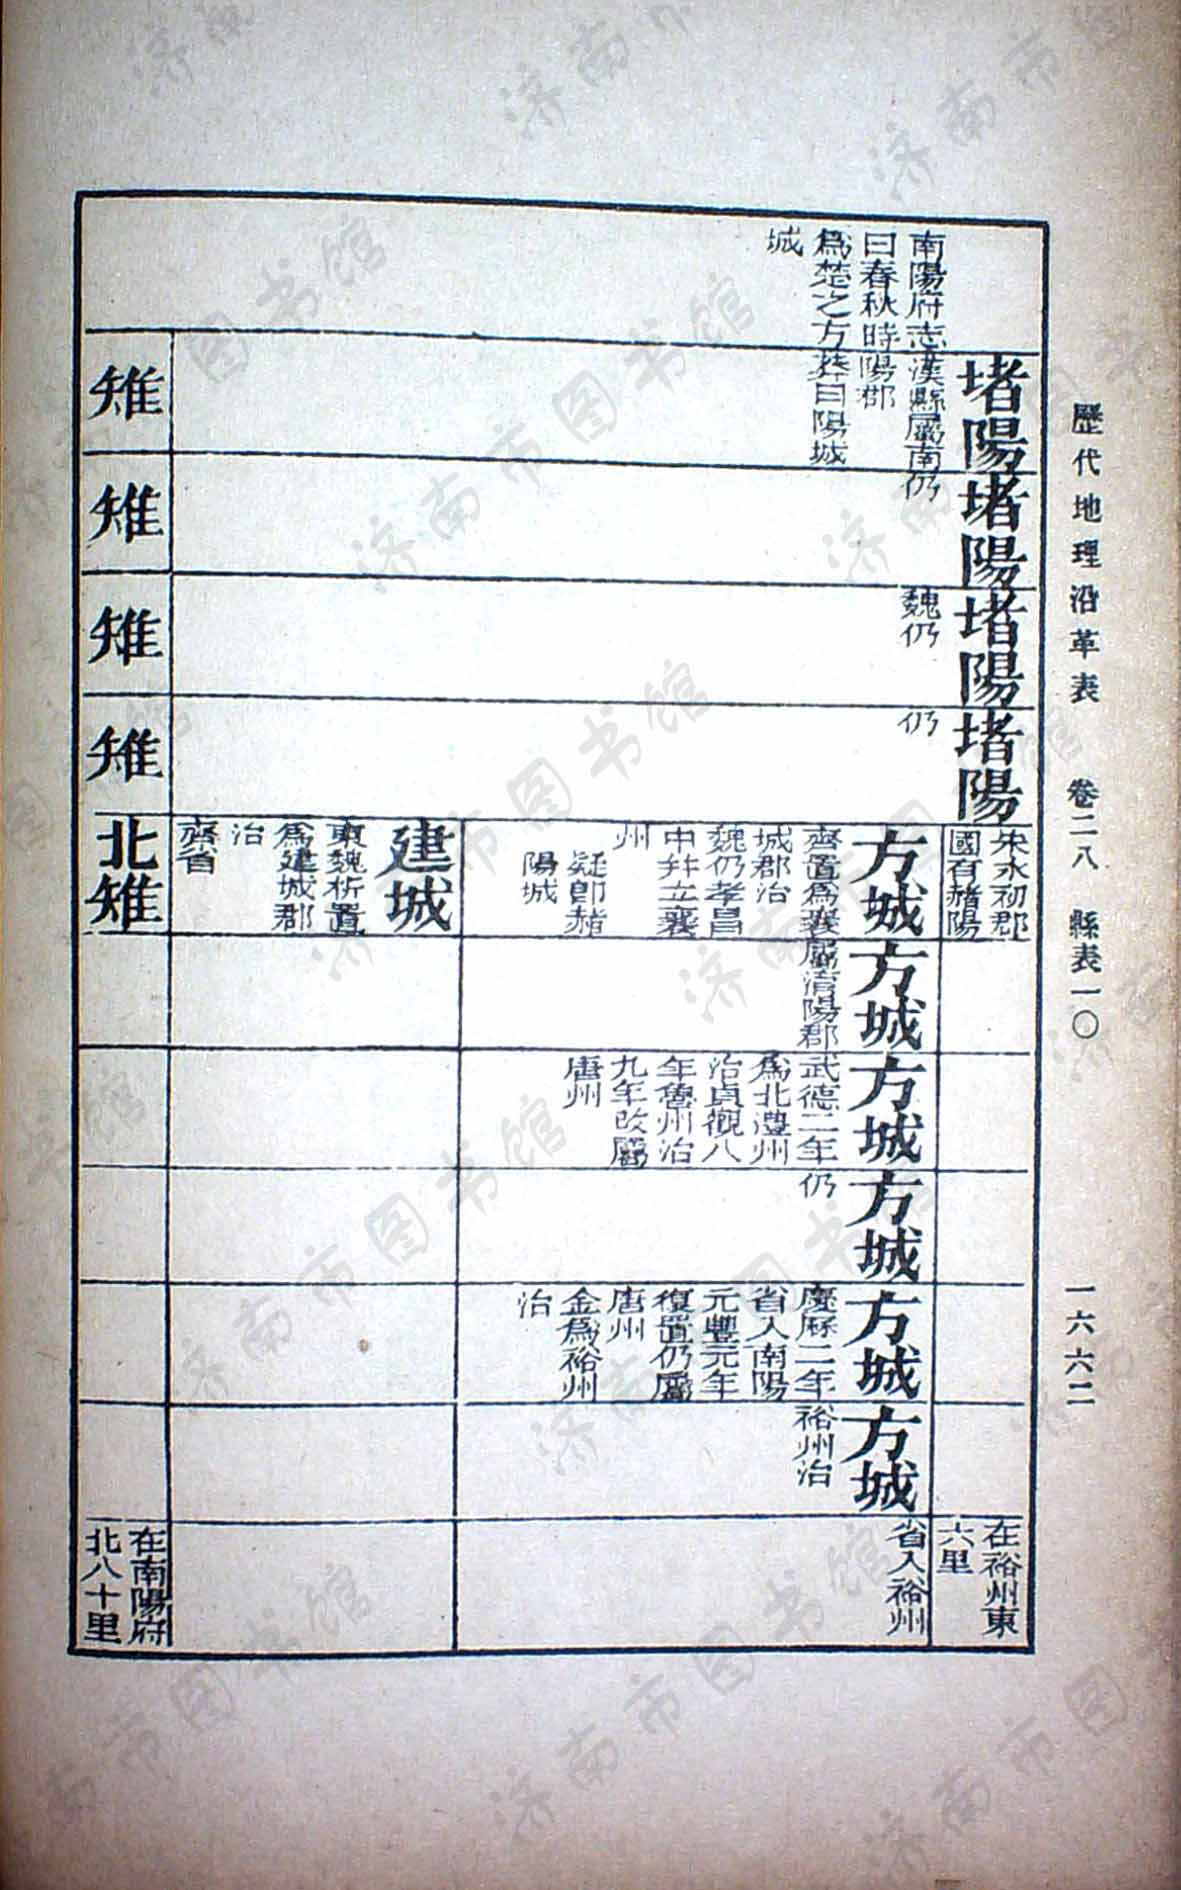 歷代地理沿革表 卷二八 縣表一〇 一六六二
南陽府志
曰春秋時
爲楚之方
城
堵陽
漢縣屬南
陽郡
莽曰陽城
堵陽
仍
堵陽
魏仍
堵陽
仍
宋永初郡
國有赭陽
在裕州東
六里
方城
齊置爲襄
城郡治
魏仍孝昌
中幷立襄
州
疑卽赭
陽城
方城
屬淯陽郡
方城
武德二年
爲北澧州
治貞觀八
年魯州治
九年改屬
唐州
方城
仍
方城
慶厤二年
省入南陽
元豐元年
復置仍屬
唐州
金爲裕州
治
方城
裕州治
省入裕州
建城
東魏析置
爲建城郡
治
齊省
雉
雉
雉
雉
北雉
在南陽府
北八十里